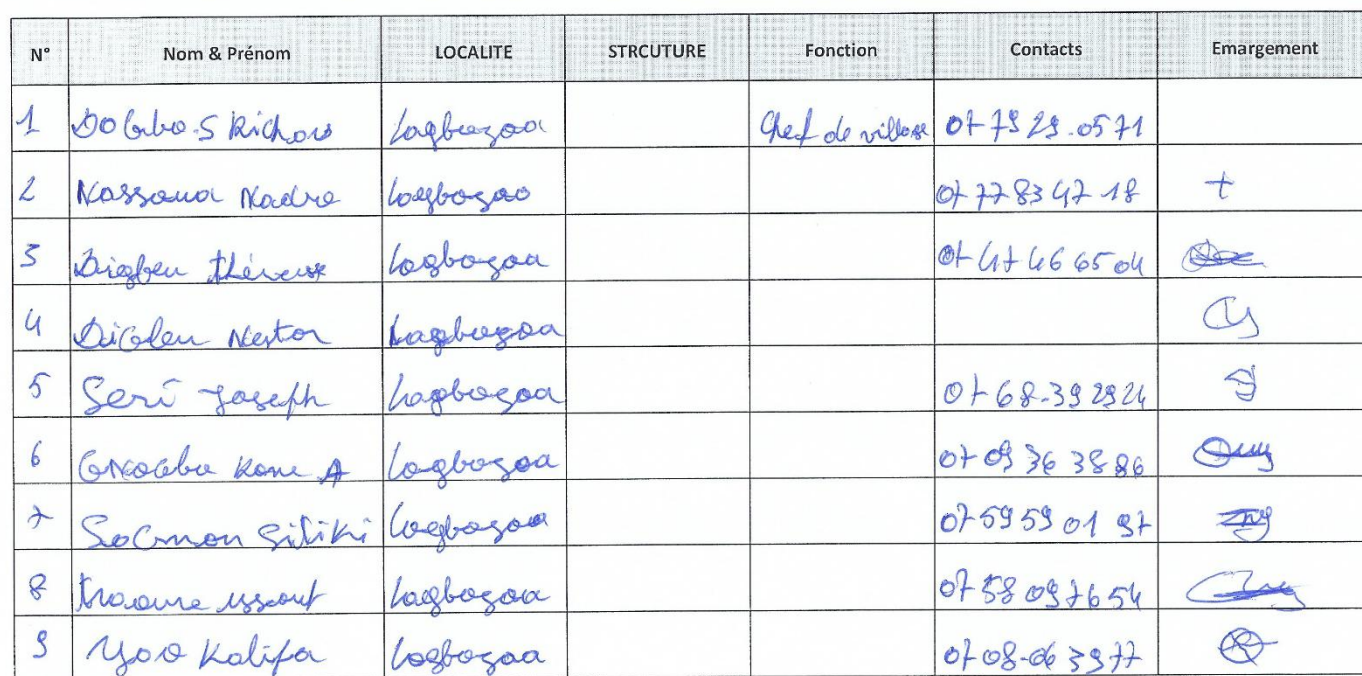 N° Nom & Prénom LOCALITE STRCUTURE Fonction Contacts Emargement
1 DOGbo S Richard Lagbogoa Chef de village 07 79 29 05 71
2 Nassoua Nadre Logbogoa 07 77 83 47 18 +
3 Digbeu thérèse Lagbogoa 07 47 46 65 04
4 DiGbeu Nestor Lagbogoa
5 Seri Joseph Lagbogoa 07 68-39 29 24
6 Kone A Logbogoa 07 09 36 38 86
7 Sitiki Logbogoa 07 59 59 01 97
8 Traoure Lagbogoa 07 58 09 76 54
9 Yoo Kalifa Logbogoa 07 08-06 39 77